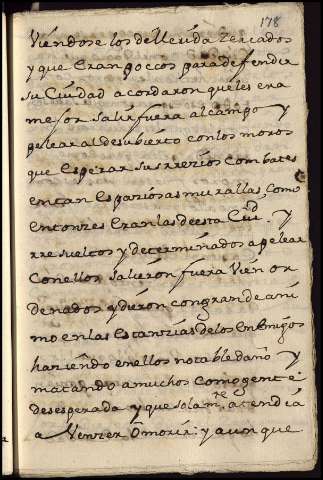 178
Viéndose los de llerida zercados
y que Eran poccos para defender
su Ciudad acordaron que les era
mejor salir fuera al campo y
pelear al descubierto con los moros
que esperar sus rrezios combates
en tan espaziosas murallas, como
entonzes eran las de esta Ciud. y
rresueltos y determinados a pelear
con ellos salieron fuera vien or
denados y dieron con grande ani
mo en las estanzias de los enemigos
haziendo en ellos notable daño y
matando a muchos como gente
desesperada y que solamte. atendia
a venzer o morir: y aunque